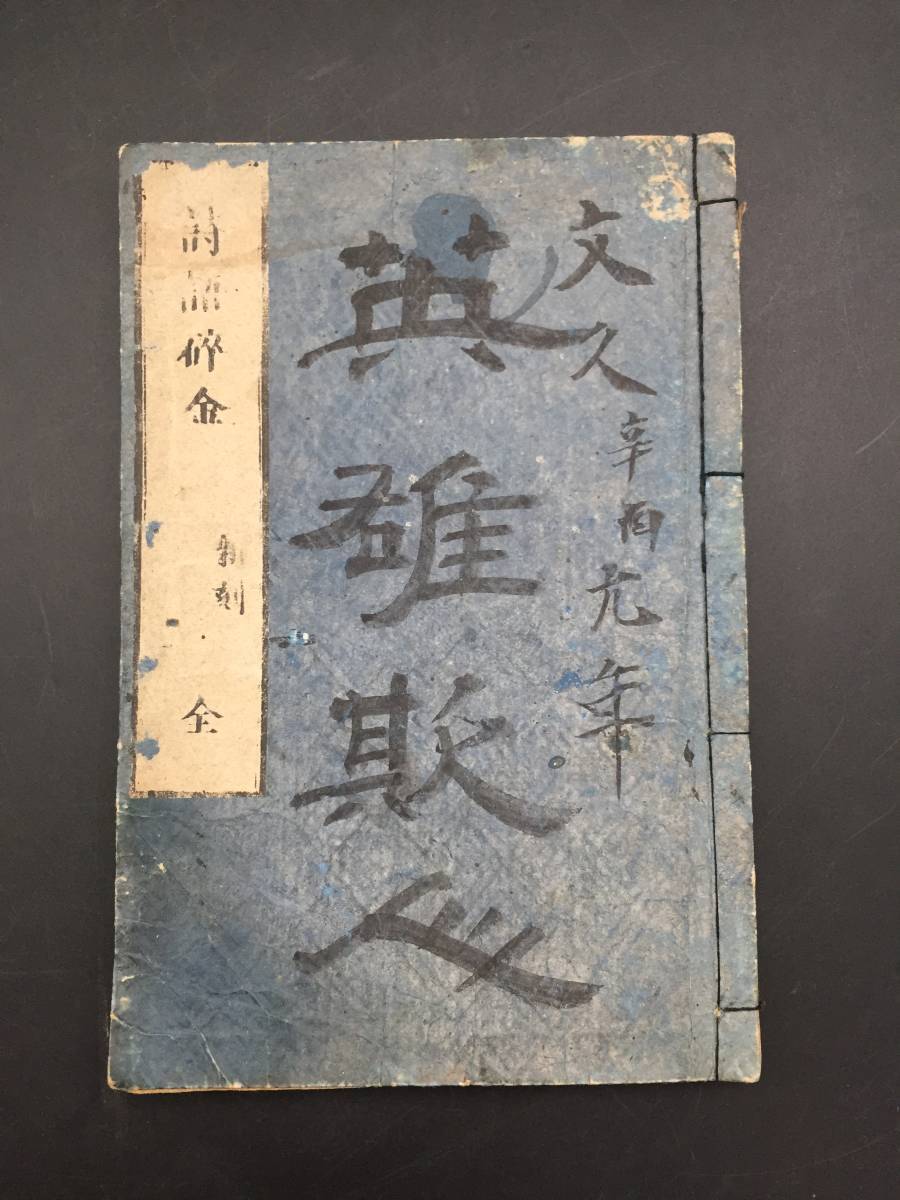 文久辛酉元年
英雄欺人
詩語碎金
新刻
全